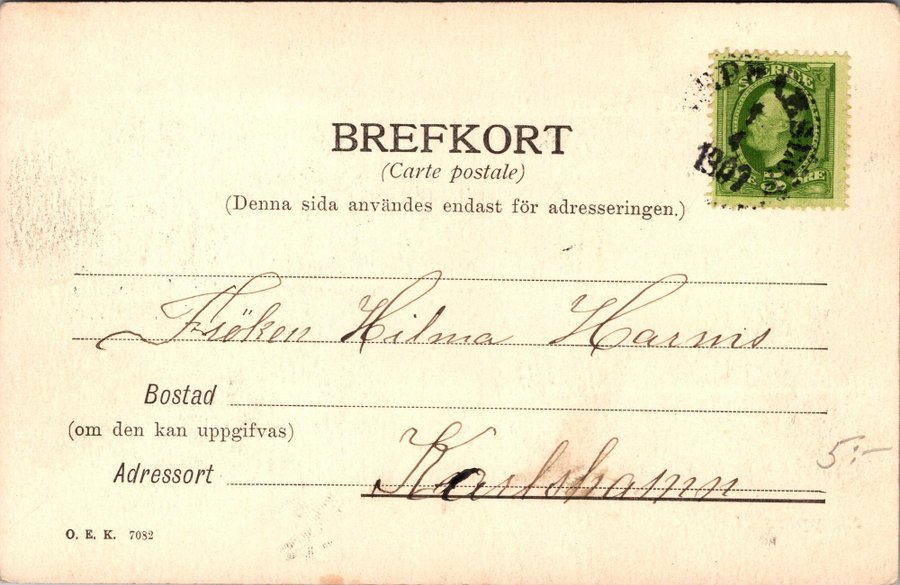 SVERIGE
1907
BREFKORT
(Carte postale)
(Denna sida användes endast för adresseringen.)
Fröken Hilma Harms
Bostad
(om den kan uppgifvas)
Adressort Karlshamn
5:-
O. E. K. 7082